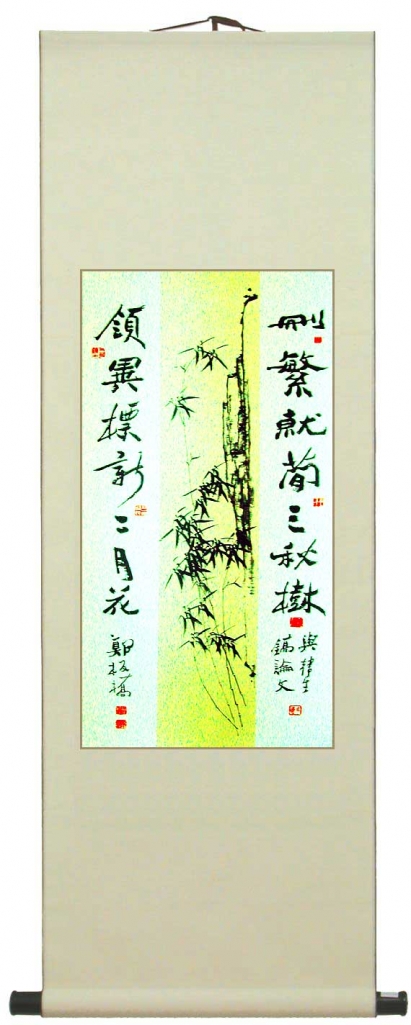 刪繁就簡三秋樹
與韓生
鎬論文
領異標新二月花
鄭板橋